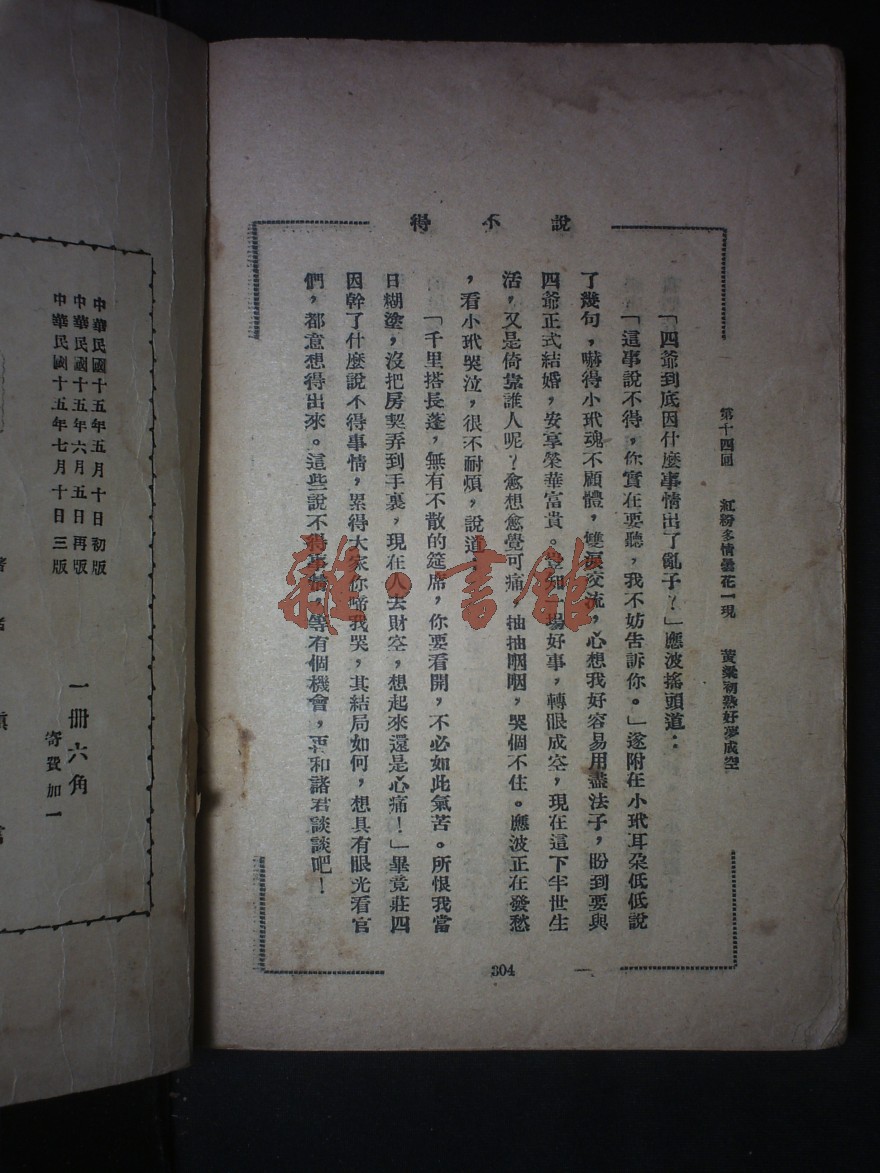 說不得
第十四回　紅粉多情曇花一現　黃粱初熟好夢成空
「四爺到底因什麼事情出了亂子？」應波搖頭道：
「這事說不得，你實在要聽，我不妨告訴你。」遂附在小玳耳朶低低說
了幾句，嚇得小玳魂不顧體，雙淚交流，心想我好容易用盡法子，盼到要與
四爺正式結婚，安享榮華富貴。豈知一場好事，轉眼成空，現在這下半世生
活，又是倚靠誰人呢？愈想愈覺可痛，抽抽咽咽，哭個不住。應波正在發愁
，看小玳哭泣，很不耐煩，說道：
「千里搭長蓬，無有不散的筵席，你要看開，不必如此氣苦。所恨我當
日糊塗，沒把房契弄到手裏，現在人去財空，想起來還是心痛！」畢竟莊四
因幹了什麼說不得事情，累得大家你啼我哭，其結局如何，想具有眼光看官
們，都意想得出來。這些說不得事情，等有個機會，再和諸君談談吧！
304
中華民國十五年五月十日初版
中華民國十五年六月五日再版
中華民國十五年七月十日三版
一冊六角
寄費加一
雜·書館